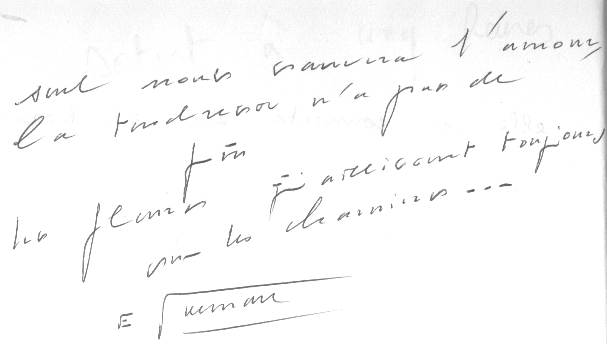 seul nous sauvera l'amour,
la tendresse n'a pas de
fin
les fleurs jailliront toujours
sur les charniers ---
E